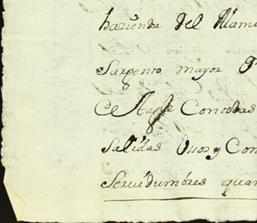 hazienda del Alamo
Sargento mayor D
Con todas
Salidas Vsos y Con
Servidumbres quan